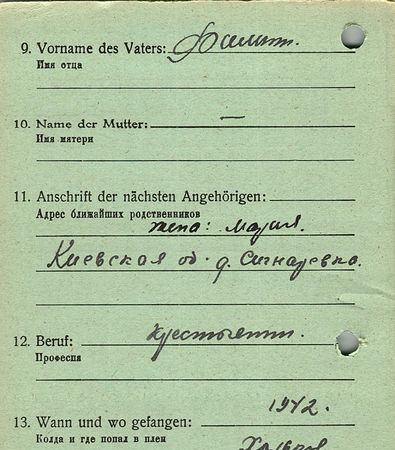 9. Vorname des Vaters: Филипп.
Имя отца
10. Name der Mutter: —
Имя матери
11. Anschrift der nächsten Angehörigen:
Адрес ближайших родственников
жена: Мария.
Киевская об. д.
12. Beruf: крестьянин.
Професпя
13. Wann und wo gefangen: 1942.
Колда и где попал в плен